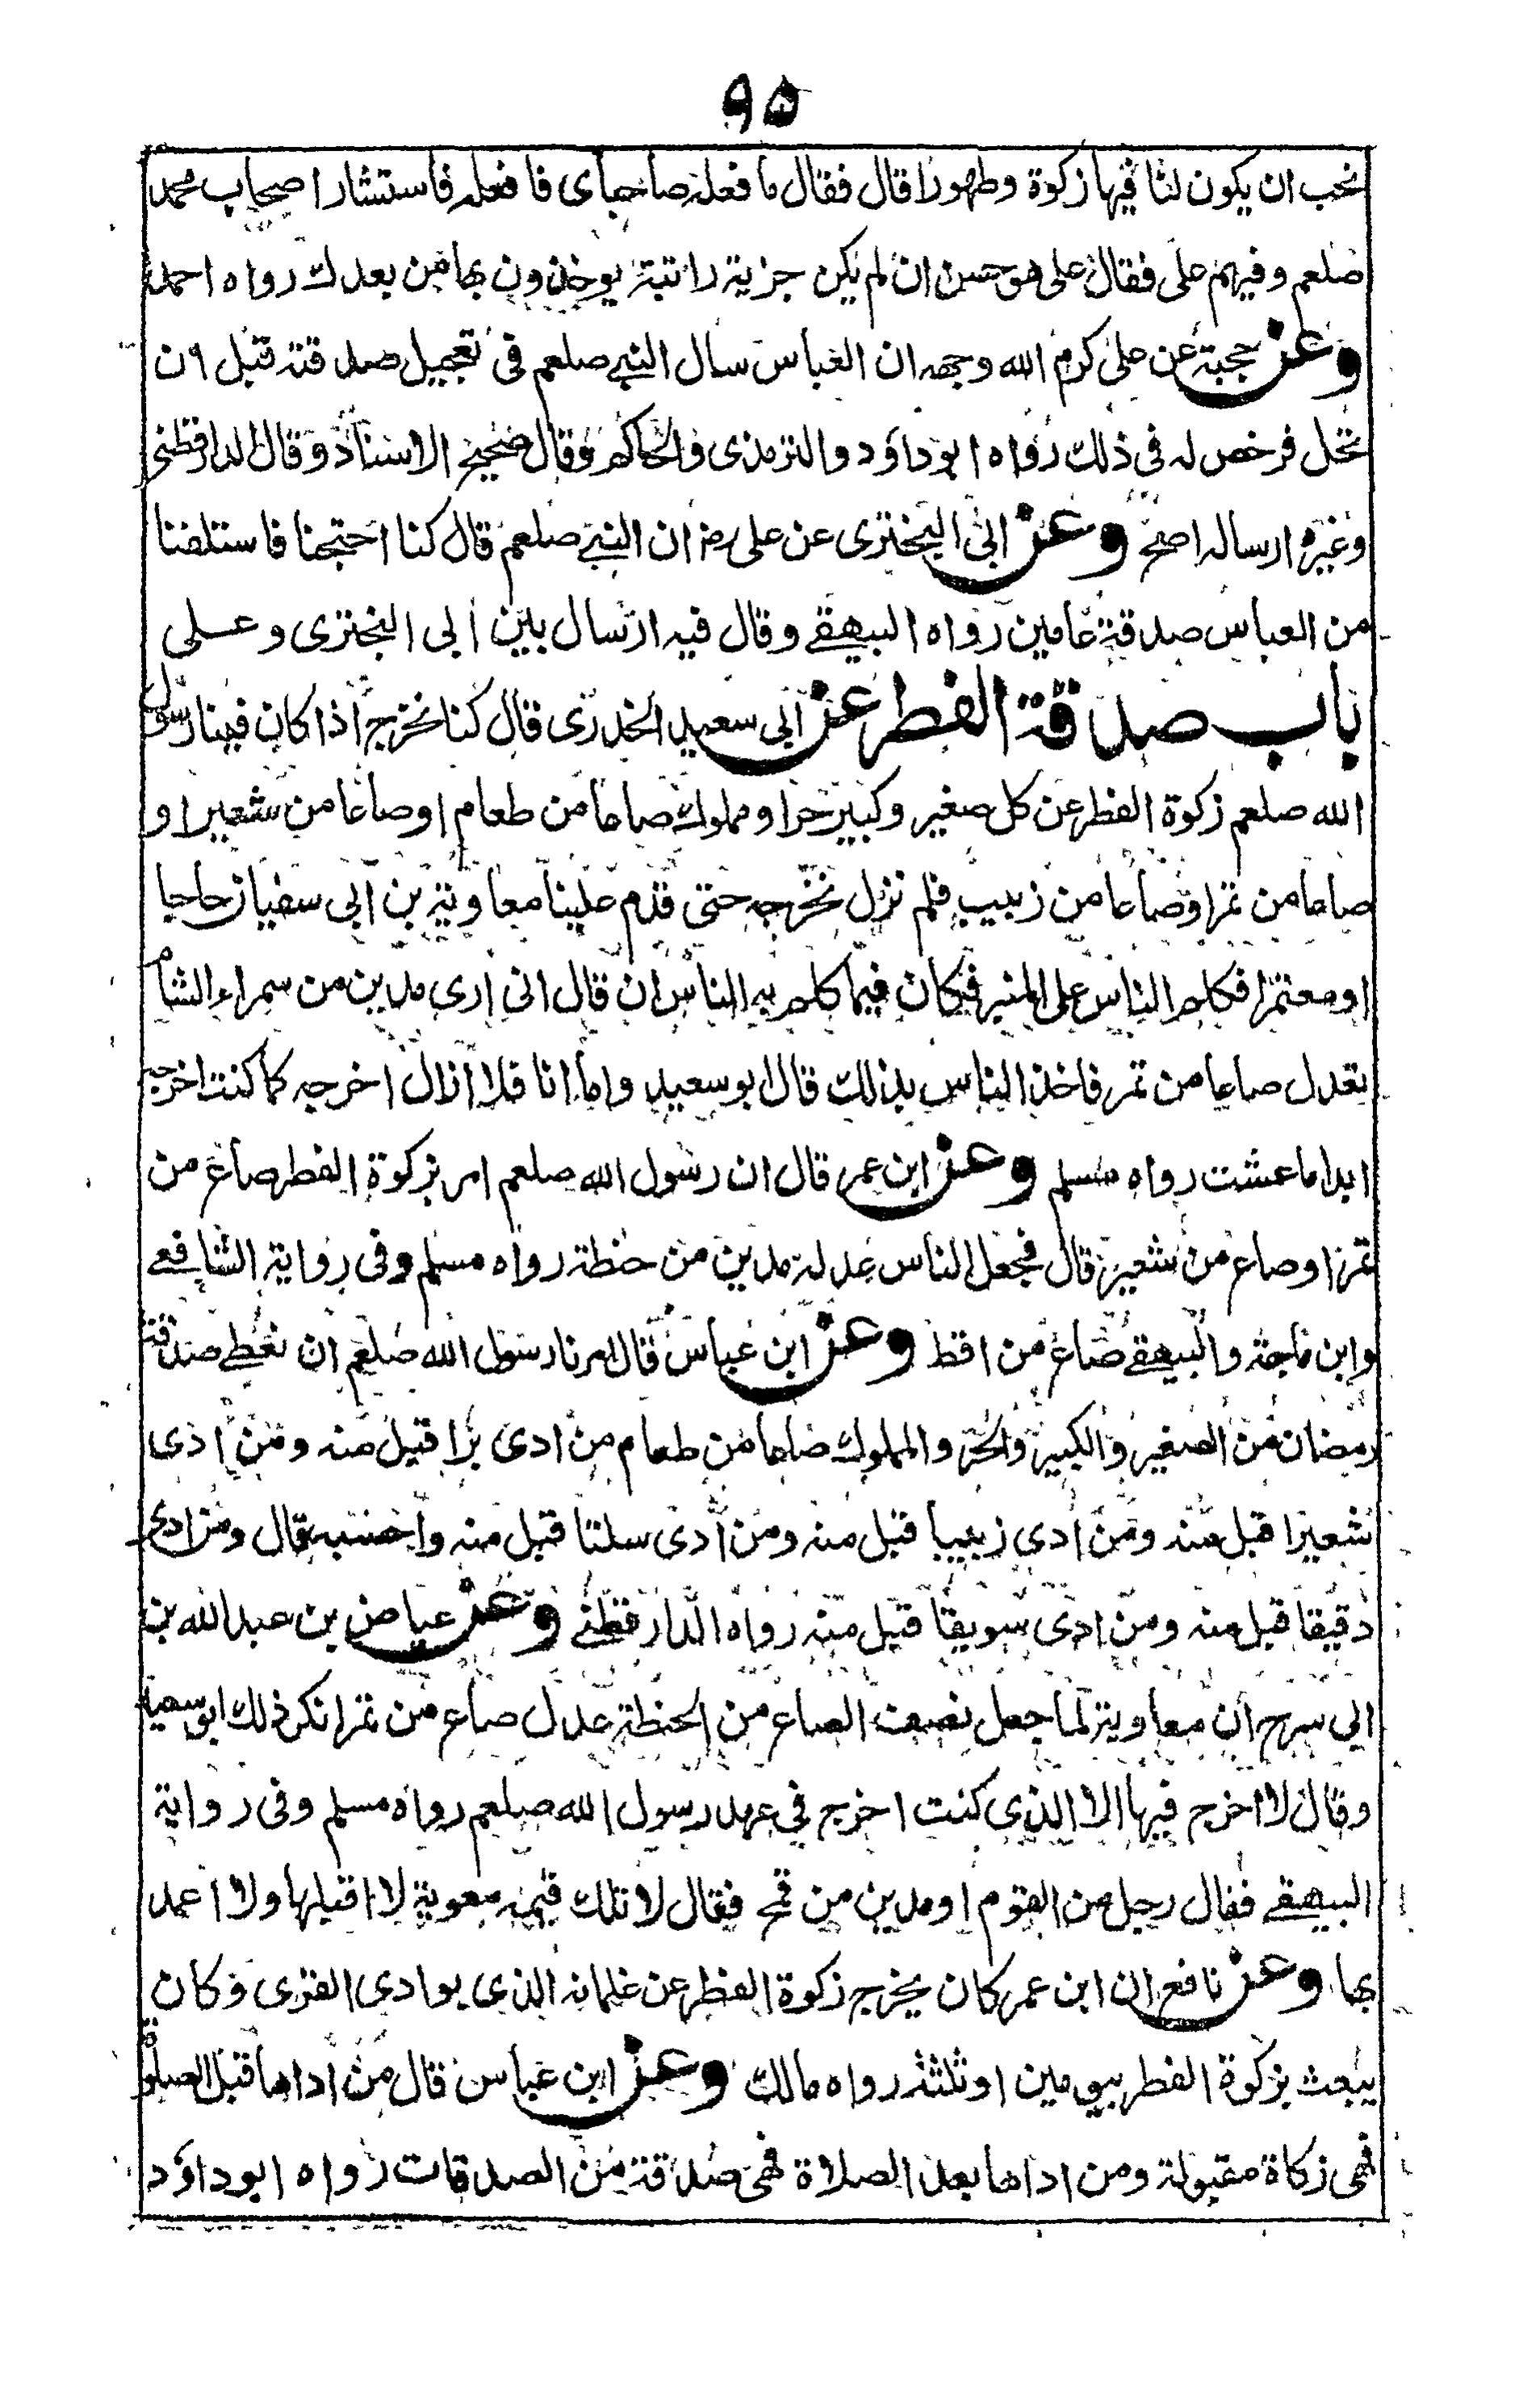 ٩٥
نحب ان يكون لنا فيها زكوة وطهورا قال فقال ما فعله صاحباى فافعله فاستشار اصحاب محمد
صلعم وفيهم على فقال على هو حسن ان لم يكن جزية راتبة يوخذون بها من بعدك رواه احمد
وعن حجية عن على كرم الله وجهه ان العباس سال النبے صلعم فى تعجيل صدقته قبل ان
تحل فرخص له فى ذلك رواه ابو داؤد والترمذى والحاكم وقال صحيح الاسناد وقال الدارقطنى
وغيره ارساله اصح وعن ابى البخترى عن على رض ان النبے صلعم قال كنا احتجنا فاستلفنا
من العباس صدقة عامين رواه البيهقے وقال فيه ارسال بين ابى البخترى وعلى
باب صدقة الفطر عن ابى سعيد الخدرى قال كنا نخرج اذا كان فينا رسول
الله صلعم زكوة الفطر عن كل صغير وكبير حرا ومملوك صاعا من طعام اوصاعا من شعير او
صاعا من تمر اوصاعا من زبيب فلم نزل نخرجه حتى قدم علينا معاوية بن ابى سفيان حاجا
اومعتمرا فكلم الناس على المنبر فكان فيما كلم به الناس ان قال انى ارى مدين من سمراء الشام
تعدل صاعا من تمر فاخذ الناس بذالك قال ابو سعيد واما انا فلا ازال اخرجه كما كنت اخرجه
ابدا ما عشت رواه مسلم وعن ابن عمر قال ان رسول الله صلعم امر بزكوة الفطر صاع من
تمر اوصاع من شعير قال فجعل الناس عدله مدين من حنطة رواه مسلم وفى رواية الشافعے
وابن ماجة والبيهقے صاع من اقط وعن ابن عباس قال امرنا رسول الله صلعم ان نعطے صدقة
رمضان من الصغير والكبير والحر والمملوك صاعا من طعام من ادى برا قبل منه ومن ادى
شعيرا قبل منه ومن ادى زبيبا قبل منه ومن ادى سلتا قبل منه واحسبه قال ومن ادى
دقيقا قبل منه ومن ادى سويقا قبل منه رواه الدارقطنے وعن عياض بن عبد الله بن
ابى سرح ان معاوية لما جعل نصف الصاع من الحنطة عدل صاع من تمر انكر ذلك ابو سعيد
وقال لا اخرج فيها الا الذى كنت اخرج فى عهد رسول الله صلعم رواه مسلم وفى رواية
البيهقے فقال رجل من القوم اومدين من قمح فقال لا تلك قيمة معوية لا اقبلها ولا اعمد
بها وعن نافع ان ابن عمر كان يخرج زكوة الفطر عن غلمانه الذى بوادى القرى وكان
يبعث بزكوة الفطر بيومين اوثلثة رواه مالك وعن ابن عباس قال من اداها قبل الصلوة
فهى زكاة مقبولة ومن اداها بعد الصلاة فهى صدقة من الصدقات رواه ابو داؤد